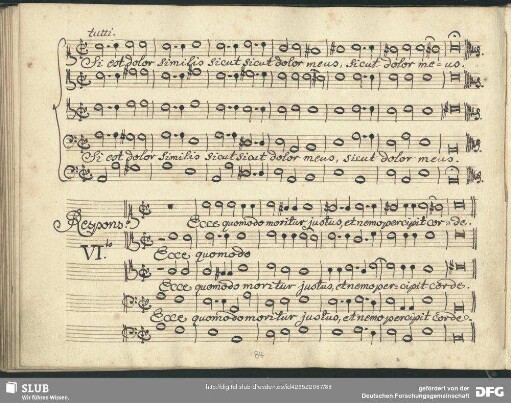 tutti.
Si est dolor similis sicut sicut dolor meus, sicut dolor me=us.
Si est dolor similis sicut sicut dolor meus, sicut dolor meus.
Respons:
VI.
Ecce quomodo moritur justus, et nemo percipit cor=de.
Ecce quomodo
Ecce quomodo moritur justus, et nemo percipit corde.
Ecce quomodo moritur justus, et nemo percipit corde.
84
SLUB
Wir führen Wissen.
gefördert von der
Deutschen Forschungsgemeinschaft
DFG